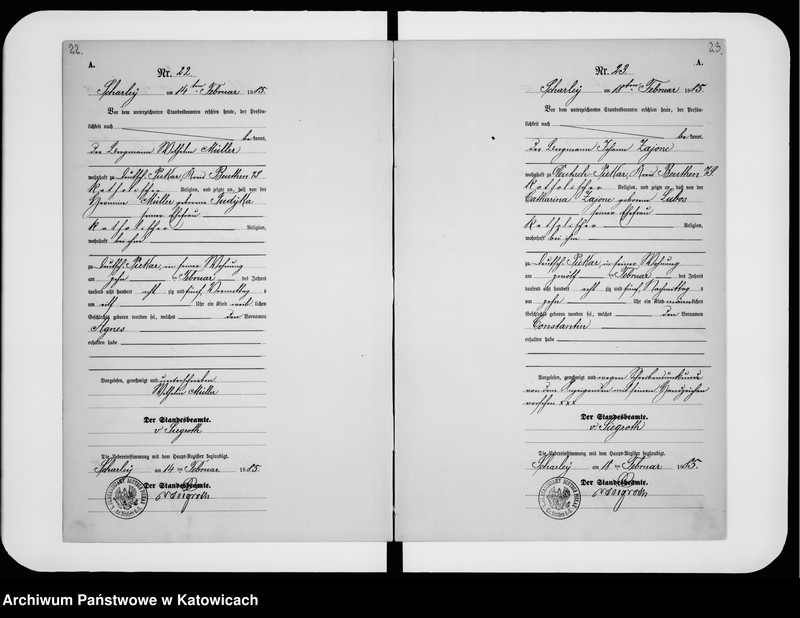 22.
A.
Nr. 22.
Scharley am 14ten Februar 1885.
Vor dem unterzeichneten Standesbeamten erschien heute, der Persön-
lichkeit nach
be kannt,
der Bergmann Wilhelm Müller
wohnhaft zu Deutsch Piekar, Kreis Beuthen
katholischer Religion, und zeigte an, daß von der
Müller geborene
seiner Ehefrau
katholischer Religion,
wohnhaft bei ihm
zu Deutsch Piekar, in seiner Wohnung
am zehn Februar des Jahres
tausend acht hundert acht zig und fünf, Vormittag s
um Uhr ein Kind weib lichen
Geschlechts geboren worden sei, welches den Vornamen
Agnes
erhalten habe
Vorgelesen, genehmigt und unterschrieben
Wilhelm Müller
Der Standesbeamte.
v. Siegroth
Die Uebereinstimmung mit dem Haupt-Register beglaubigt.
Scharley am 14 ten Februar 1885.
Der Standesbeamte.
v. Siegroth
23.
A.
Nr. 23.
Scharley am 18ten Februar 1885.
Vor dem unterzeichneten Standesbeamten erschien heute, der Persön-
lichkeit nach
be kannt,
der Bergmann Johann Zajonc
wohnhaft zu Deutsch Piekar, Kreis Beuthen
katholischer Religion, und zeigte an, daß von der
Catharina Zajonc geborenen Lubos
seiner Ehefrau
katholischer Religion,
wohnhaft bei ihm
zu Deutsch Piekar, in seiner Wohnung
am zwölf Februar des Jahres
tausend acht hundert acht zig und fünf, Nachmittag s
um zehn Uhr ein Kind männlichen
Geschlechts geboren worden sei, welches den Vornamen
Constantin
erhalten habe
Vorgelesen, genehmigt und wegen Schreibensunkunde
von dem Anzeigenden mit seinem Handzeichen
versehen xxx
Der Standesbeamte.
v. Siegroth
Die Uebereinstimmung mit dem Haupt-Register beglaubigt.
Scharley am 18 ten Februar 1885.
Der Standesbeamte.
v. Siegroth
Archiwum Państwowe w Katowicach